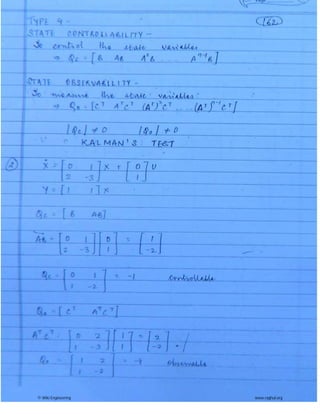 TYPE 9 -
162
STATE CONTROLLABILITY -
So control the state variables
⇒ Qc = [ B AB A²B . . . . Aⁿ⁻¹B ]
STATE OBSERVABILITY -
So measure the state variables
⇒ Qo = [Cᵀ AᵀCᵀ (Aᵀ)²Cᵀ . . . . (Aᵀ)ⁿ⁻¹Cᵀ]
|Qc| ≠ 0 |Qo| ≠ 0
KALMAN'S TEST
② Ẋ = [0 1; 2 -3] X + [0; 1] U
Y = [1 1] X
Qc = [ B AB]
AB = [0 1; 2 -3] [0; 1] = [1; -2]
Qc = [0 1; 1 -2] = -1 Controllable
Qo = [ Cᵀ AᵀCᵀ]
AᵀCᵀ = [0 2; 1 -3] [1; 1] = [2; -2]
Qo = [1 2; 1 -2] = -4 Observable
© Wiki Engineering
www.raghul.org